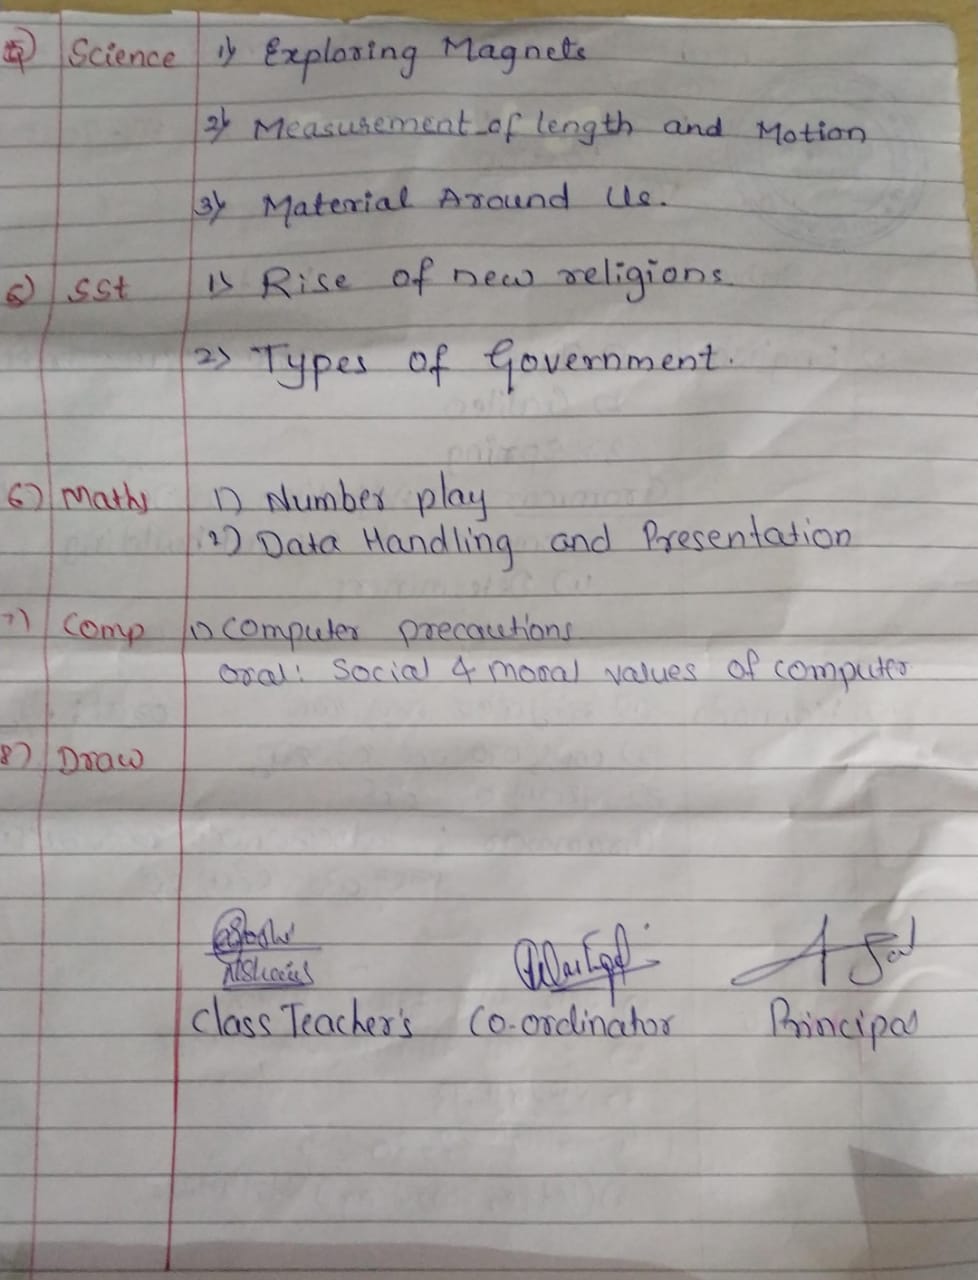 5) Science 1) Exploring Magnets
2) Measurement of length and Motion
3) Material Around Us.
6) SSt 1) Rise of new religions
2) Types of Government.
6) Maths 1) Number play
2) Data Handling and Presentation
7) Comp 1) Computer precautions
Oral: Social & moral values of computer
8) Draw
Class Teacher's Co-ordinator Principal